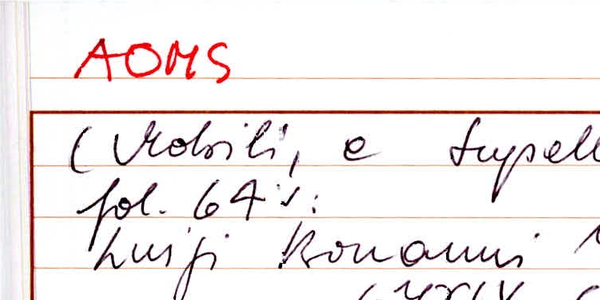 AOMS
(Mobili, e Supell
fol. 64 v:
Luigi Bonanni